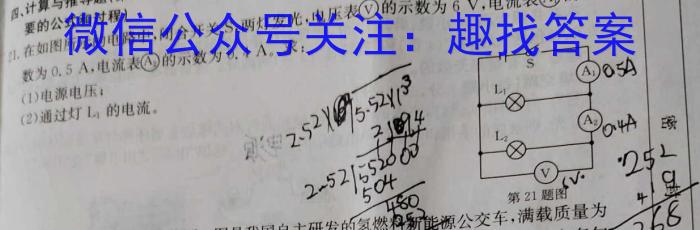 四、计算与推导题
要的公式和过程)
21.在如图所示的电路中,闭合开关S,两灯发光,电压表Ⓥ的示数为6 V,电流表
数为0.5 A,电流表Ⓐ₂的示数为0.4 A。求:
(1)电源电压;
(2)通过灯L₁的电流。
微信公众号关注:趣找答案
S
A₁ 0.5A
L₁
A₂ 0.4A
L₂
V 6V
第21题图
2.52
5.52
2.52
55200
504
480
252
9
268
是我国自主研发的氢燃料新能源公交车,满载质量为